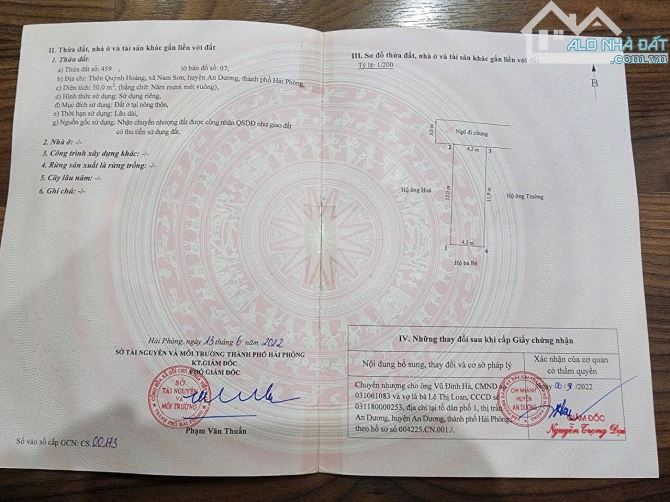 ALO NHÀ ĐẤT
.com.vn
II. Thửa đất, nhà ở và tài sản khác gắn liền với đất
1. Thửa đất:
a) Thửa đất số: 459 tờ bản đồ số: 07,
b) Địa chỉ: Thôn Quỳnh Hoàng, xã Nam Sơn, huyện An Dương, thành phố Hải Phòng,
c) Diện tích: 50,0 m², (bằng chữ: Năm mươi mét vuông),
d) Hình thức sử dụng: Sử dụng riêng,
đ) Mục đích sử dụng: Đất ở tại nông thôn,
e) Thời hạn sử dụng: Lâu dài,
g) Nguồn gốc sử dụng: Nhận chuyển nhượng đất được công nhận QSDĐ như giao đất
có thu tiền sử dụng đất.
2. Nhà ở: -/-
3. Công trình xây dựng khác: -/-
4. Rừng sản xuất là rừng trồng: -/-
5. Cây lâu năm: -/-
6. Ghi chú: -/-
Hải Phòng, ngày 13 tháng 6 năm 2012
SỞ TÀI NGUYÊN VÀ MÔI TRƯỜNG THÀNH PHỐ HẢI PHÒNG
KT.GIÁM ĐỐC
PHÓ GIÁM ĐỐC
SỞ
TÀI NGUYÊN
VÀ
MÔI TRƯỜNG
Phạm Văn Thuấn
Số vào sổ cấp GCN: CS.00173
III. Sơ đồ thửa đất, nhà ở và tài sản khác gắn liền với đất
Tỷ lệ 1/200
B
3,0 m
Ngõ đi chung
2 4,2 m 3
Hộ ông Hoà
12,0 m
11,9 m
Hộ ông Trường
1 4,2 m 4
Hộ bà Bé
IV. Những thay đổi sau khi cấp Giấy chứng nhận
Nội dung bổ sung, thay đổi và cơ sở pháp lý
Xác nhận của cơ quan
có thẩm quyền
Chuyển nhượng cho ông Vũ Đình Hà, CMND số
031061083 và vợ là bà Lê Thị Loan, CCCD số
031180000253, địa chỉ tại tổ dân phố 1, thị trấn
An Dương, huyện An Dương, thành phố Hải Phòng
theo hồ sơ số 004225.CN.001./.
Ngày 06/9/2022
CHI NHÁNH
HUYỆN
AN DƯƠNG
GIÁM ĐỐC
Nguyễn Trọng Đại